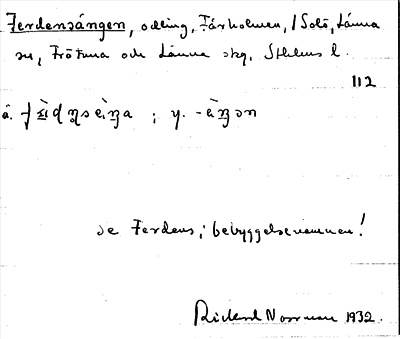 Ferdensängen, odling, Fårholmen, i Solö, Länna
sn, Frötuna och Länna skg, Sthlms l.
112
se Ferdens, i bebyggelsenamnen!
Rickard Norrman 1932.